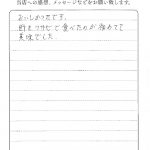 当店への感想、メッセージなどをお願い致します。
おいしかったです。
卵をワサビで食べたのが初めてで
美味でした。